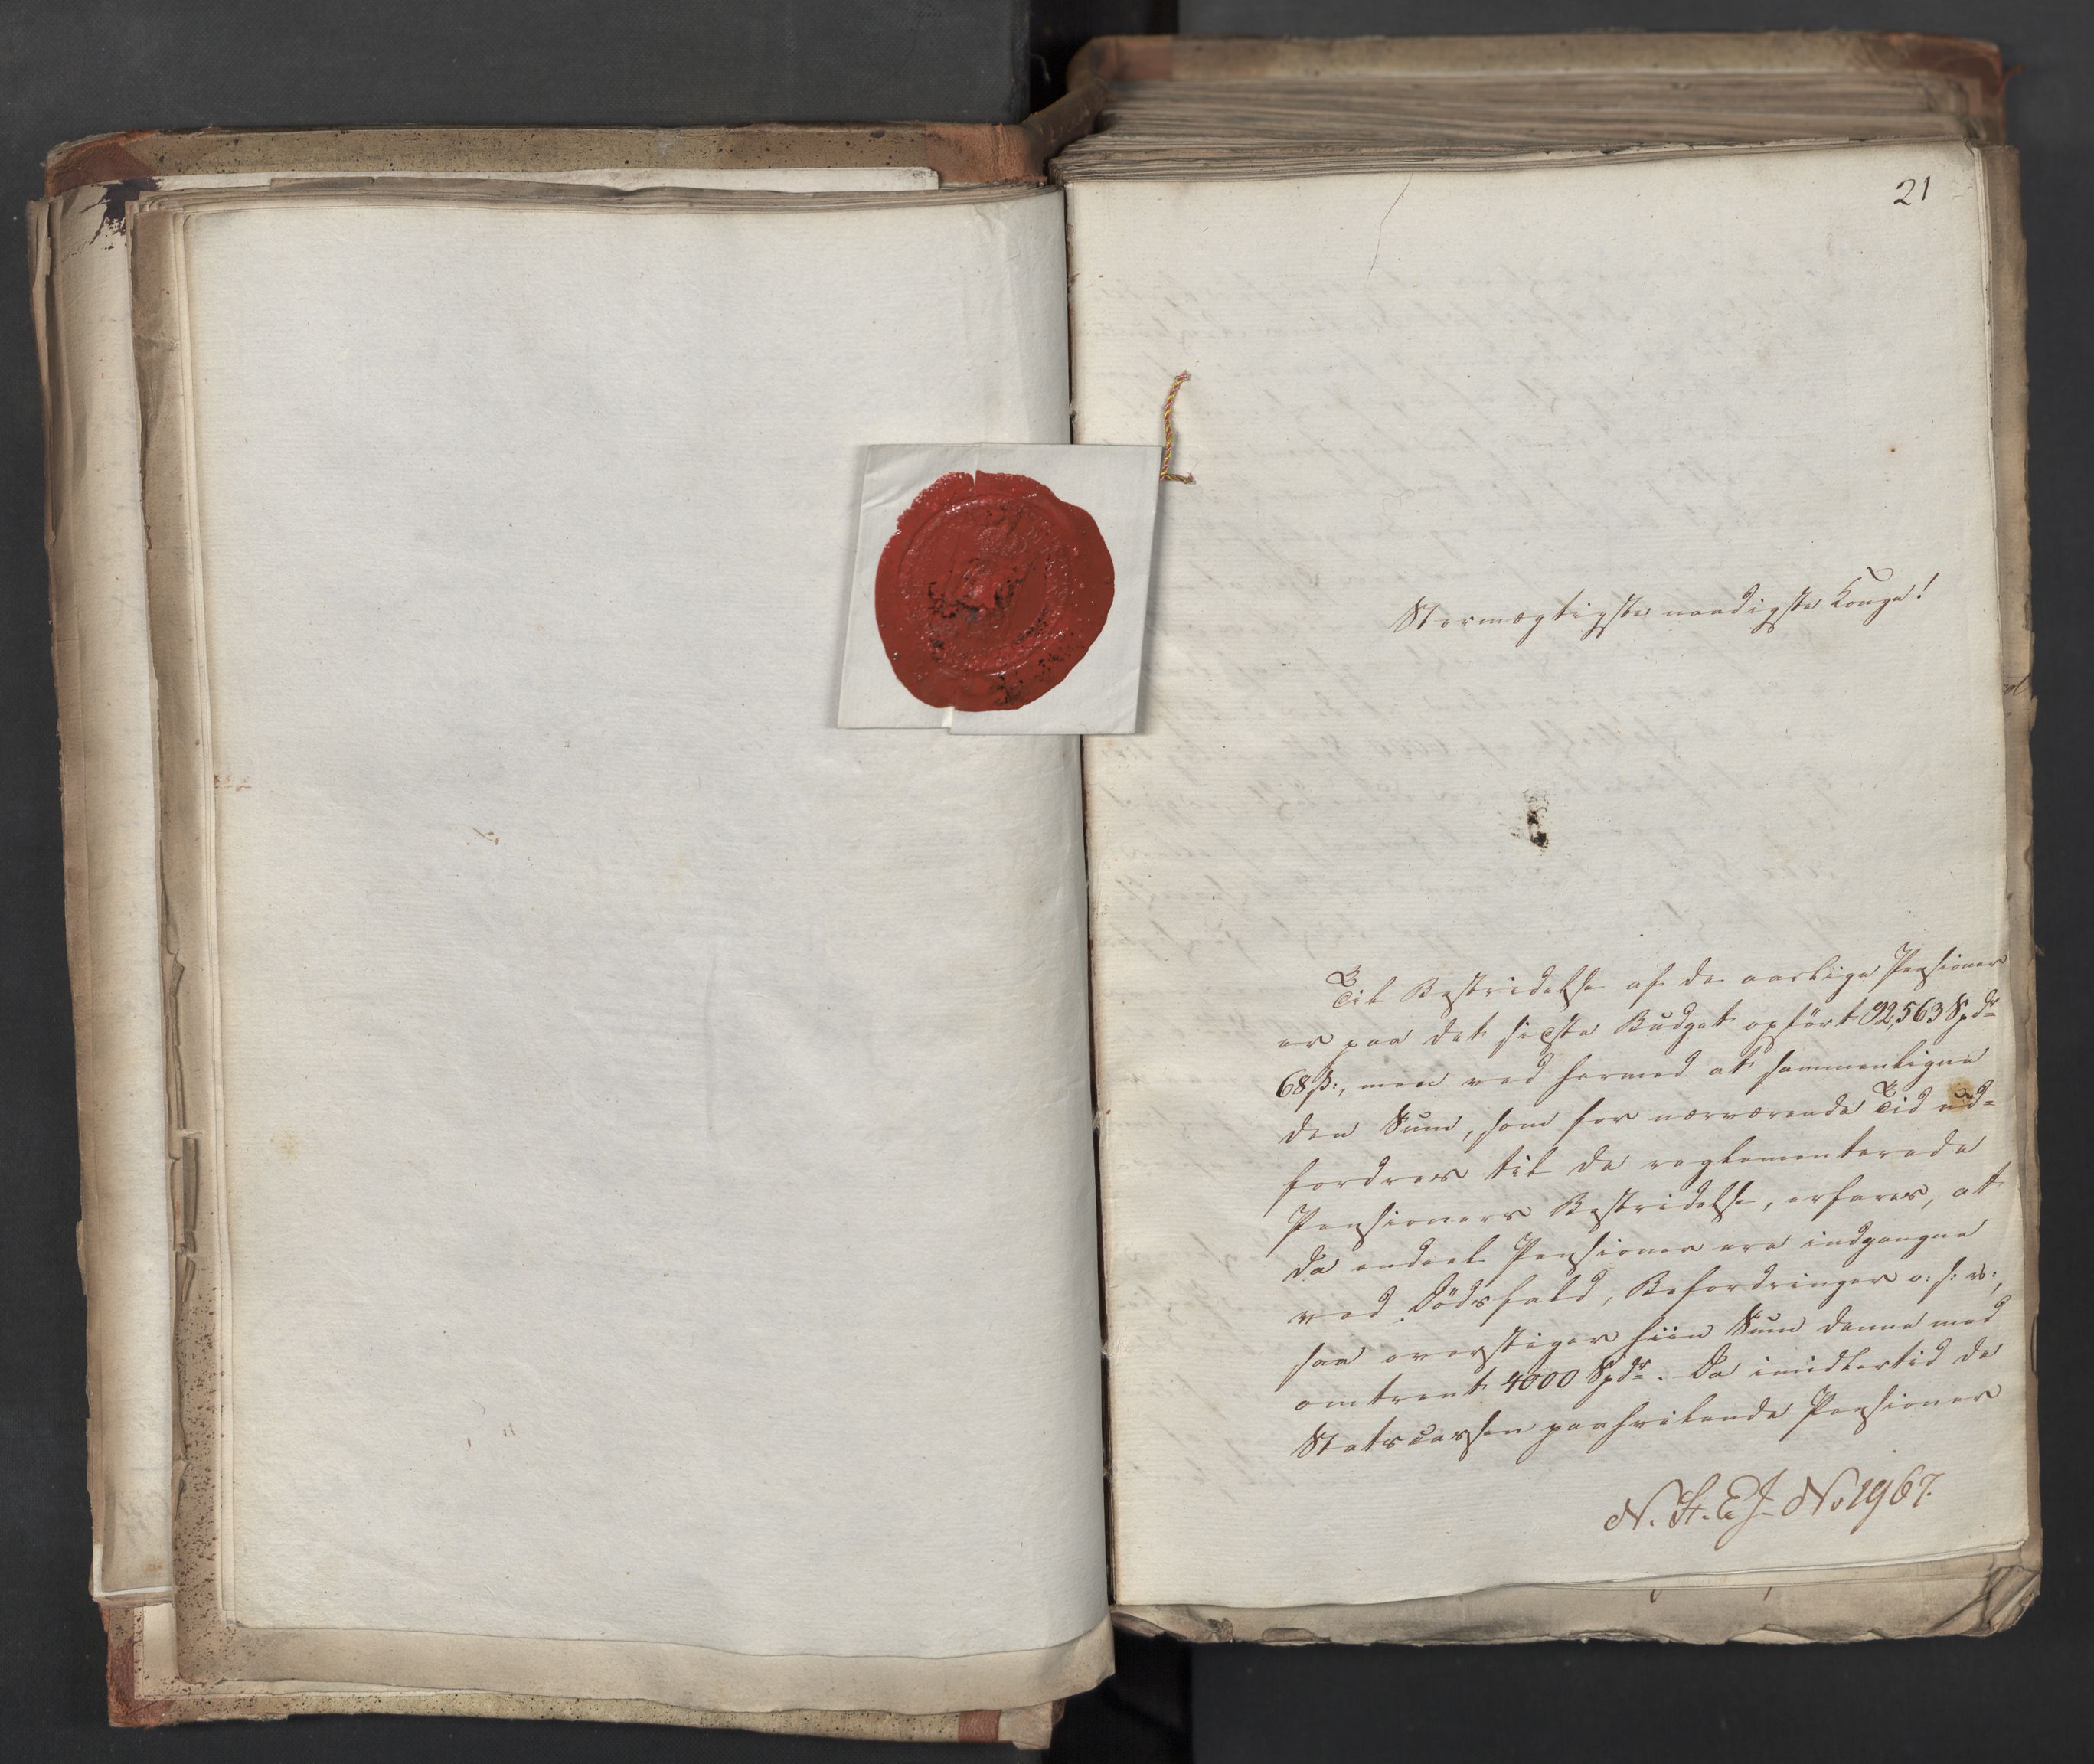 21
Stormægtigste naadigste Konge!
Til Bestridelse af de aarlige Pensioner
er paa det sidste Budget opført 92,563 Spdr
68 ß:, men ved hermed at sammenligne
den Sum, som for nærværende Tid ud-
fordres til de reglementerede
Pensioners Bestridelse, erfares, at
da endeel Pensioner ere indgangne
ved Dödsfald, Befordringer o: s: v:,
saa overstiger hiin Sum denne med
omtrent 4000 Spdr. Da imidlertid de
Statscassen paahvilende Pensioner
N. St. E. J. No 1967.